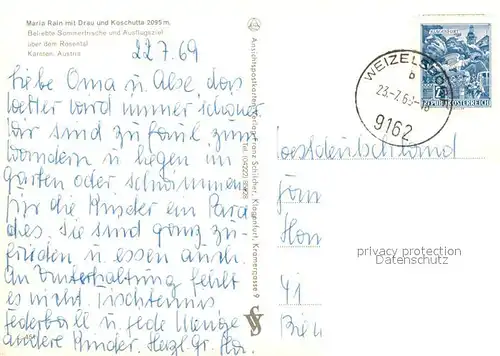 Maria Rain mit Drau und Koschutta 2095 m,
Beliebte Sommerfrische und Ausflugsziel
über dem Rosental
Kärnten, Austria
22.7.69
Liebe Oma u. Ilse, das
Wetter wird immer schöner
Wir sind zu faul zum
Wandern u. liegen im
Garten oder schwimmen
für die Kinder ein Para
dies. Sie sind ganz zu-
frieden u. essen auch.
An Unterhaltung fehlt
es nicht. Tischtennis
Federball u. jede Menge
andere Kinder. Herzl. Gr.
Ansichtspostkarten Verlag Franz Schilcher, Klagenfurt, Kramergasse 9
SV
WEIZELSDORF
b
23.-7.69-18
9162
REPUBLIK ÖSTERREICH
Westdeutschland
privacy protection
Datenschutz
41